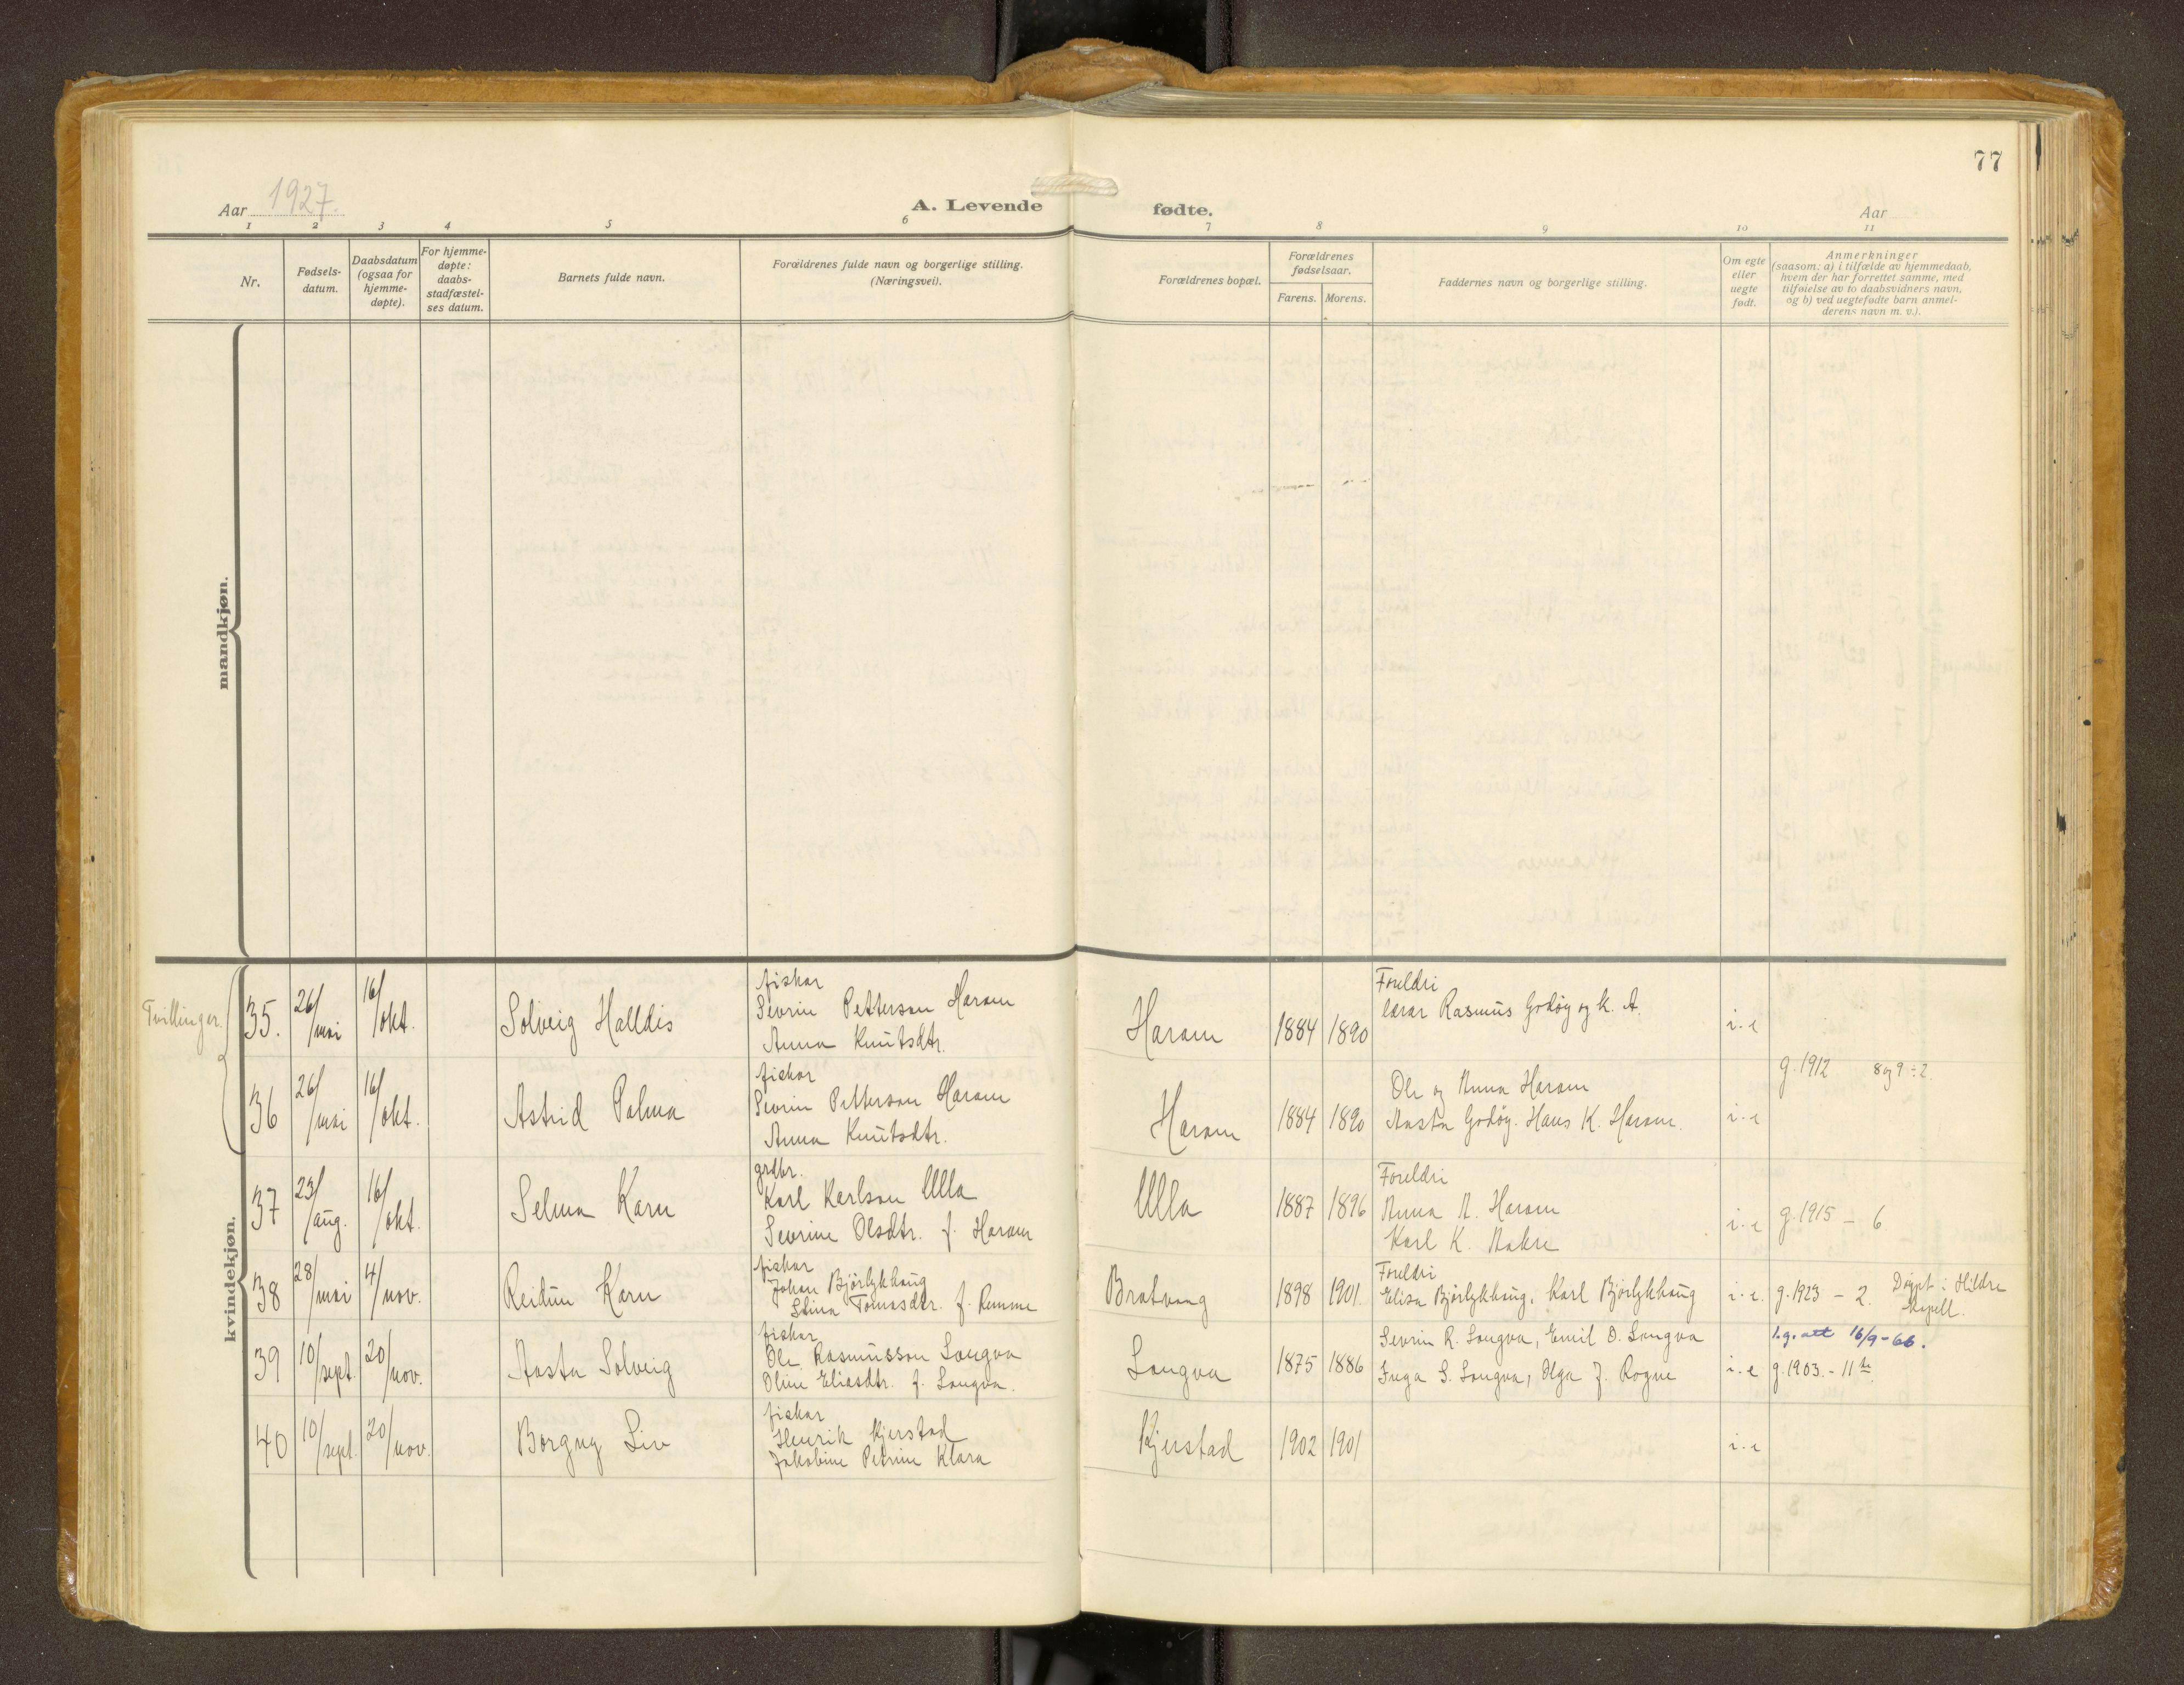 77
Aar 1927.
A. Levende fødte.
Aar
1 2 3 4 5 6 7 8 9 10 11
Nr.
Fødsels-
datum.
Daabsdatum
(ogsaa for
hjemme-
døpte).
For hjemme-
døpte:
daabs-
stadfæstel-
ses datum.
Barnets fulde navn.
Forældrenes fulde navn og borgerlige stilling.
(Næringsvei).
Forældrenes bopæl.
Forældrenes
fødselsaar.
Farens. Morens.
Faddernes navn og borgerlige stilling.
Om egte
eller
uegte
født.
Anmerkninger
(saasom: a) i tilfælde av hjemmedaab,
hvem der har forrettet samme, med
tilføielse av to daabsvidners navn,
og b) ved uegtefødte barn anmel-
derens navn m. v.).
mandkjøn.
kvindekjøn.
Tvillinger.
35. 26/mai 16/okt. Solveig Halldis
fiskar
Sevrin Petterson Haram
Anna Knutsdtr.
Haram 1884 1890
Foreldri
lærar Rasmus Godøy og k. A.
i.e
36 26/mai 16/okt. Astrid Palma
fiskar
Sevrin Petterson Haram
Anna Knutsdtr.
Haram 1884 1890
Ole og Anna Haram
Aasta Godøy. Hans K. Haram.
i.e
g. 1912 8 og 9 ÷ 2
37 23/aug. 16/okt. Selma Karn
grdbr.
Karl Karlson Ulla
Sevrine Olsdtr. f. Haram
Ulla 1887 1896
Foreldri
Anna A. Haram
Karl K. Aakre
i.e g. 1915 – 6
38 28/mai 4/nov. Reidun Karn
fiskar
Johan Bjørlykhaug
Stina Tomasdtr. f. Remme
Bratvaag 1898 1901.
Foreldri
Elisa Bjørlykhaug, Karl Bjørlykhaug
i.e. g. 1923 – 2. Døypt i Hildre
kapell.
39 10/sept. 20/nov. Aasta Solveig
fiskar
Ole Rasmusson Longva
Oline Eliasdtr. f. Longva.
Longva 1875 1886
Sevrin R. Longva, Emil O. Longva
Inga S. Longva, Olga J. Rogne
i.e
l.g. att 16/9-66.
g. 1903. – 11te
40 10/sept. 20/nov. Borgny Liv
fiskar
Henrik Kjerstad
Jakobine Petrine Klara
Kjerstad 1902 1901
i.e